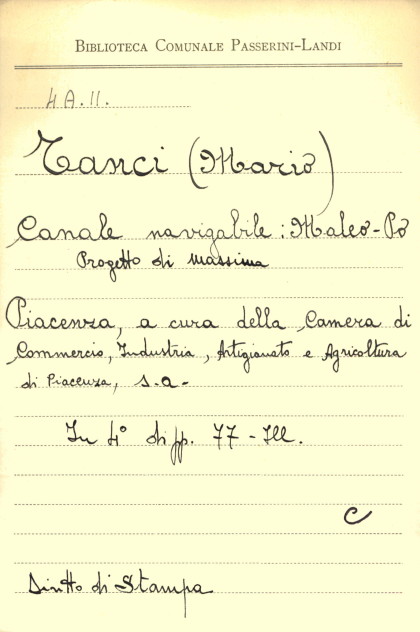 BIBLIOTECA COMUNALE PASSERINI-LANDI
4 A. 11.
Zanci (Mario)
Canale navigabile: Maleo-Po
Progetto di massima
Piacenza, a cura della Camera di
Commercio, Industria, Artigianato e Agricoltura
di Piacenza, s.a-
In 4° di pp. 77 - Ill.
C
Diritto di Stampa